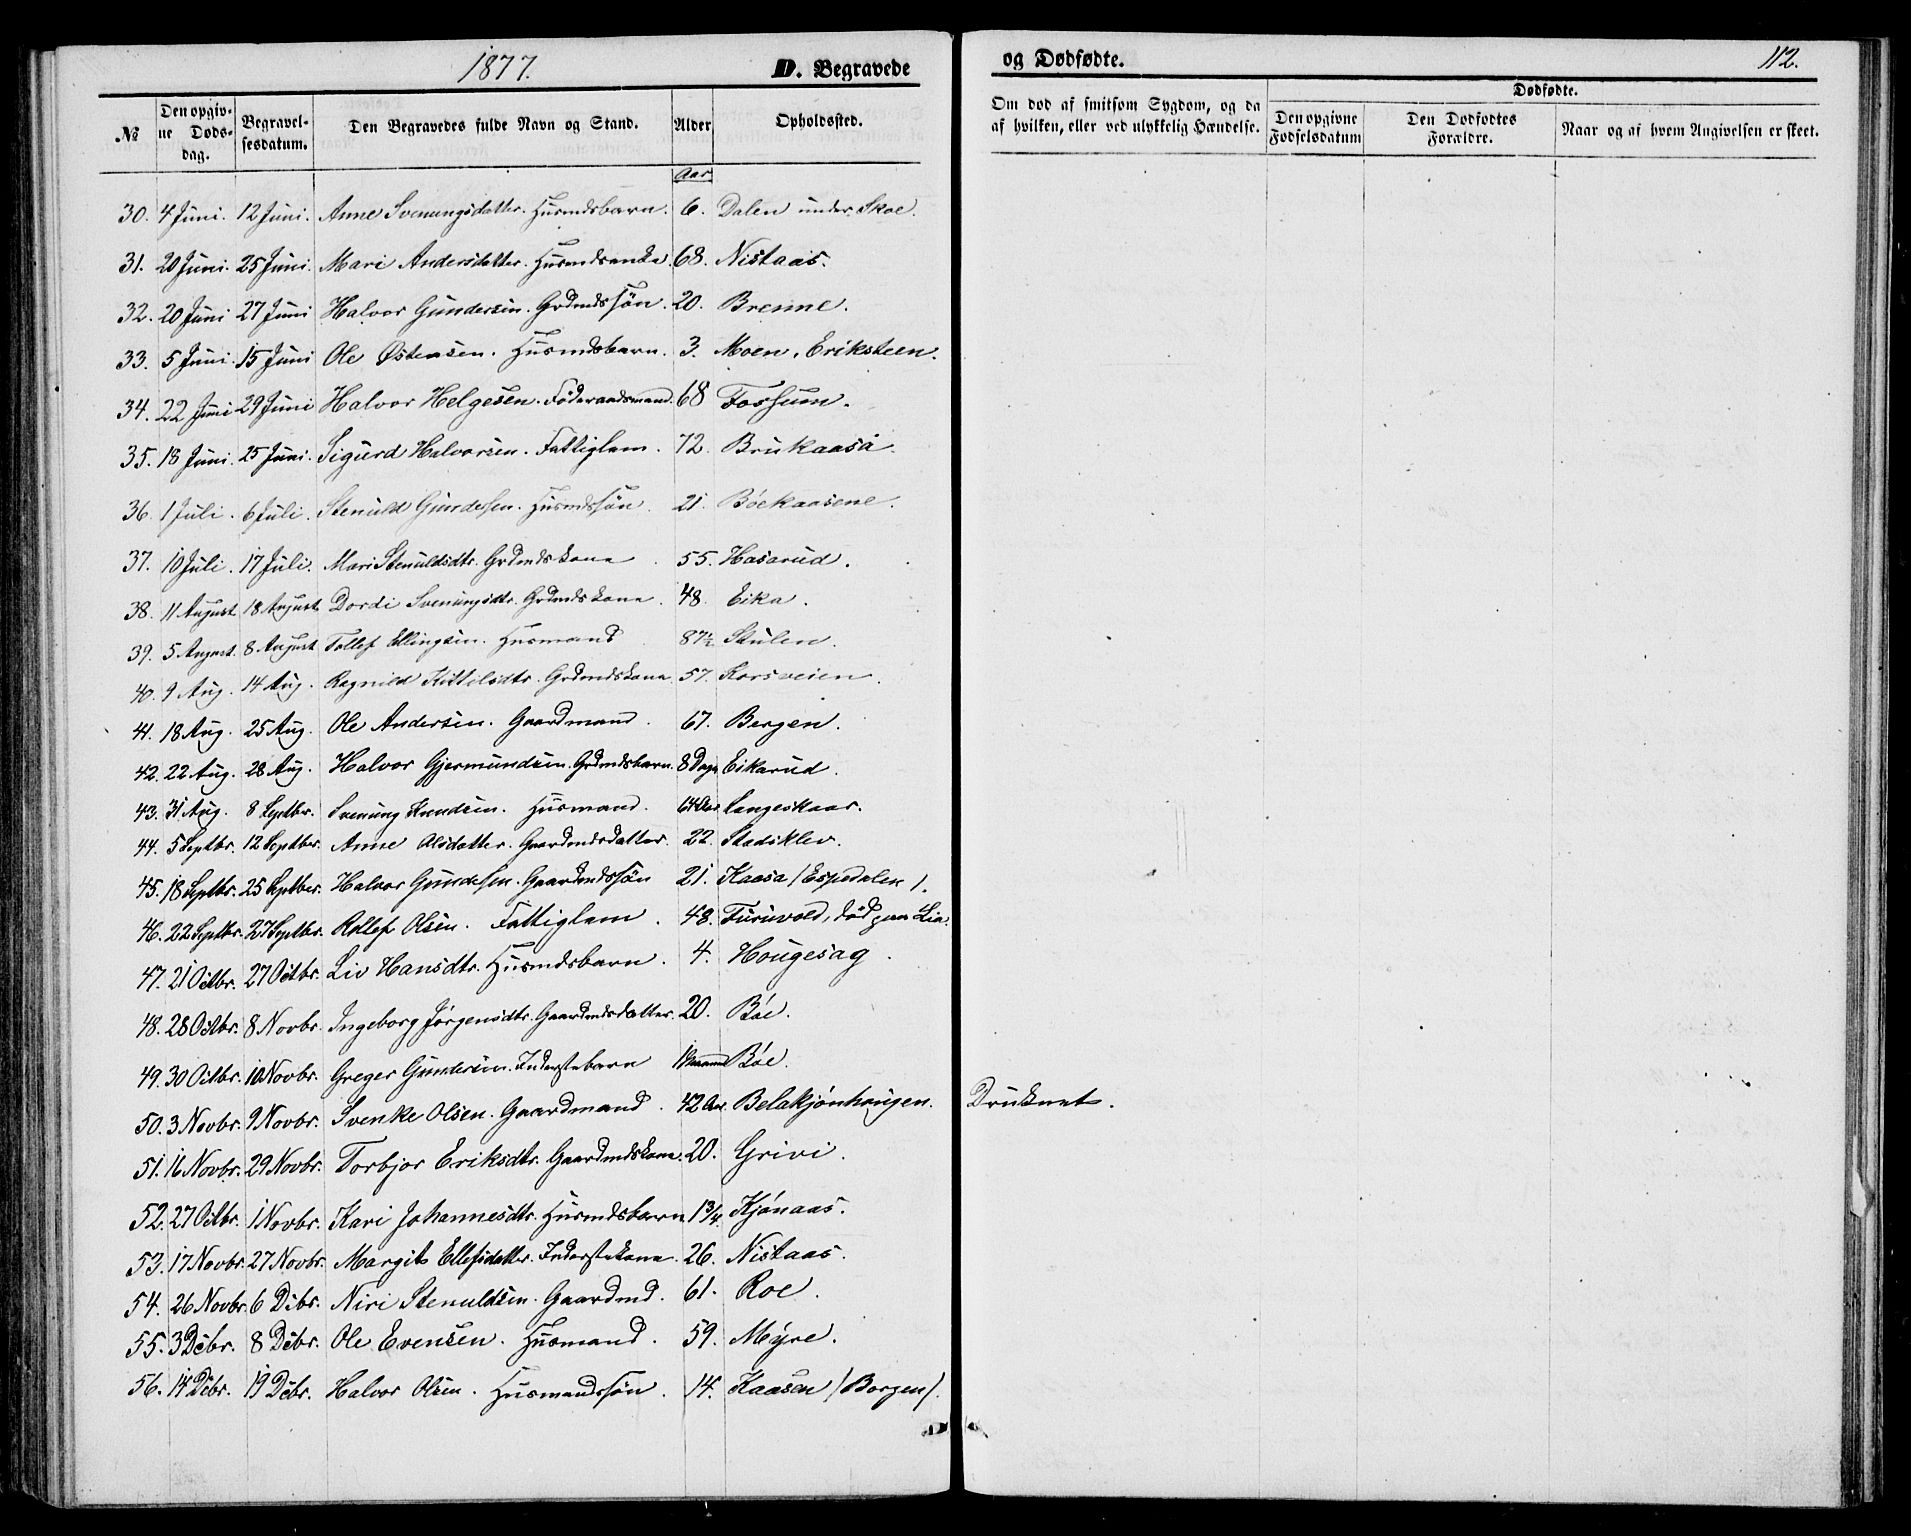 1877.
D. Begravede
og Dødfødte.
112.
№
Den opgivne Døds-dag.
Begravelsesdatum.
Den Begravedes fulde Navn og Stand.
Alder
Opholdssted.
Om død af smitsom Sygdom, og da af hvilken, eller ved ulykkelig Hændelse.
Dødfødte.
Den opgivne Fødselsdatum
Den Dødfødtes Forældre.
Naar og af hvem Angivelsen er skeet.
Aar
30. 4 Juni. 12 Juni. Anne Svenungsdatter. Husmdsbarn. 6. Dalen under Skoe.
31. 20 Juni. 25 Juni. Mari Andersdatter. Husmdsenke. 68. Nistaas.
32. 20 Juni 27 Juni Halvor Gundersen. Grdmdssøn. 20. Brenne.
33. 5 Juni. 15 Juni Ole Østensen. Husmdsbarn. 3. Moen, Eriksteen.
34. 22 Juni 29 Juni Halvor Helgesen. Føderaadsmand. 68 Fossum.
35. 18 Juni. 25 Juni. Sigurd Halvorsen. Fattiglem. 72. Brukaasa.
36. 1 Juli. 6 Juli. Stenuld Gundersen. Husmdssøn. 21. Bøekaasene.
37. 10 Juli. 17 Juli. Mari Stenuldsdtr. Grdmdskone. 55. Hasarud.
38. 11 August 18 August Dordi Svenungsdtr. Grdmdskone. 48. Eika.
39. 5 August. 8 August Tollef Ellingsen. Husmand 87½ Stulen.
40. 9 Aug. 14 Aug. Ragnild Kittilsdtr. Grdmdskone 57. Korsveien.
41. 18 Aug. 25 Aug. Ole Andersen. Gaardmand. 67. Bergen.
42. 22 Aug. 28 Aug. Halvor Gjermundsen. Grdmdsbarn. 8 Dage Eikarud.
43. 31 Aug. 8 Septbr. Svenung Knudsen. Husmand. 64 Aar Langeskaar.
44. 5 Septbr. 12 Septber. Anne Olsdatter. Gaardmdsdatter. 22. Stadsklev.
45. 18 Septbr. 25 Septber. Halvor Gundersen. Gaardmdssøn 21. Kaasa /Espedalen/.
46. 22 Septbr. 27 Septbr. Rollef Olsen. Fattiglem. 48. Furuvold, død paa Lia.
47. 21 Octbr. 27 Octbr. Liv Hansdtr. Husmdsbarn. 4. Hougesag.
48. 28 Octbr. 8 Novbr. Ingeborg Jørgensdtr. Gaardmdsdatter. 20. Bøe.
49. 30 Octbr. 10 Novbr. Greger Gundersen. Inderstebarn Bøe.
50. 3 Novbr. 9 Novbr. Svenke Olsen. Gaardmand. 42 Aar. Belakjønhaugen. Druknet.
51. 16 Novbr. 29 Novbr. Torbjor Eriksdtr. Gaardmdskone. 20. Grivi.
52. 27 Octbr. 1 Novbr. Kari Johannesdtr. Husmdsbarn 1¾. Kjønaas.
53. 17 Novbr. 27 Novbr. Margit Ellefsdatter. Inderstekone. 26. Nistaas.
54. 26 Novbr. 6 Dcbr. Niri Stenuldsen. Gaardmd. 61. Roe.
55. 3 Dcbr. 8 Dcbr. Ole Evensen. Husmand. 59. Myre.
56. 14 Dcbr. 19 Dcbr. Halvor Olsen. Husmandssøn. 14. Kaasen /Borgen/.